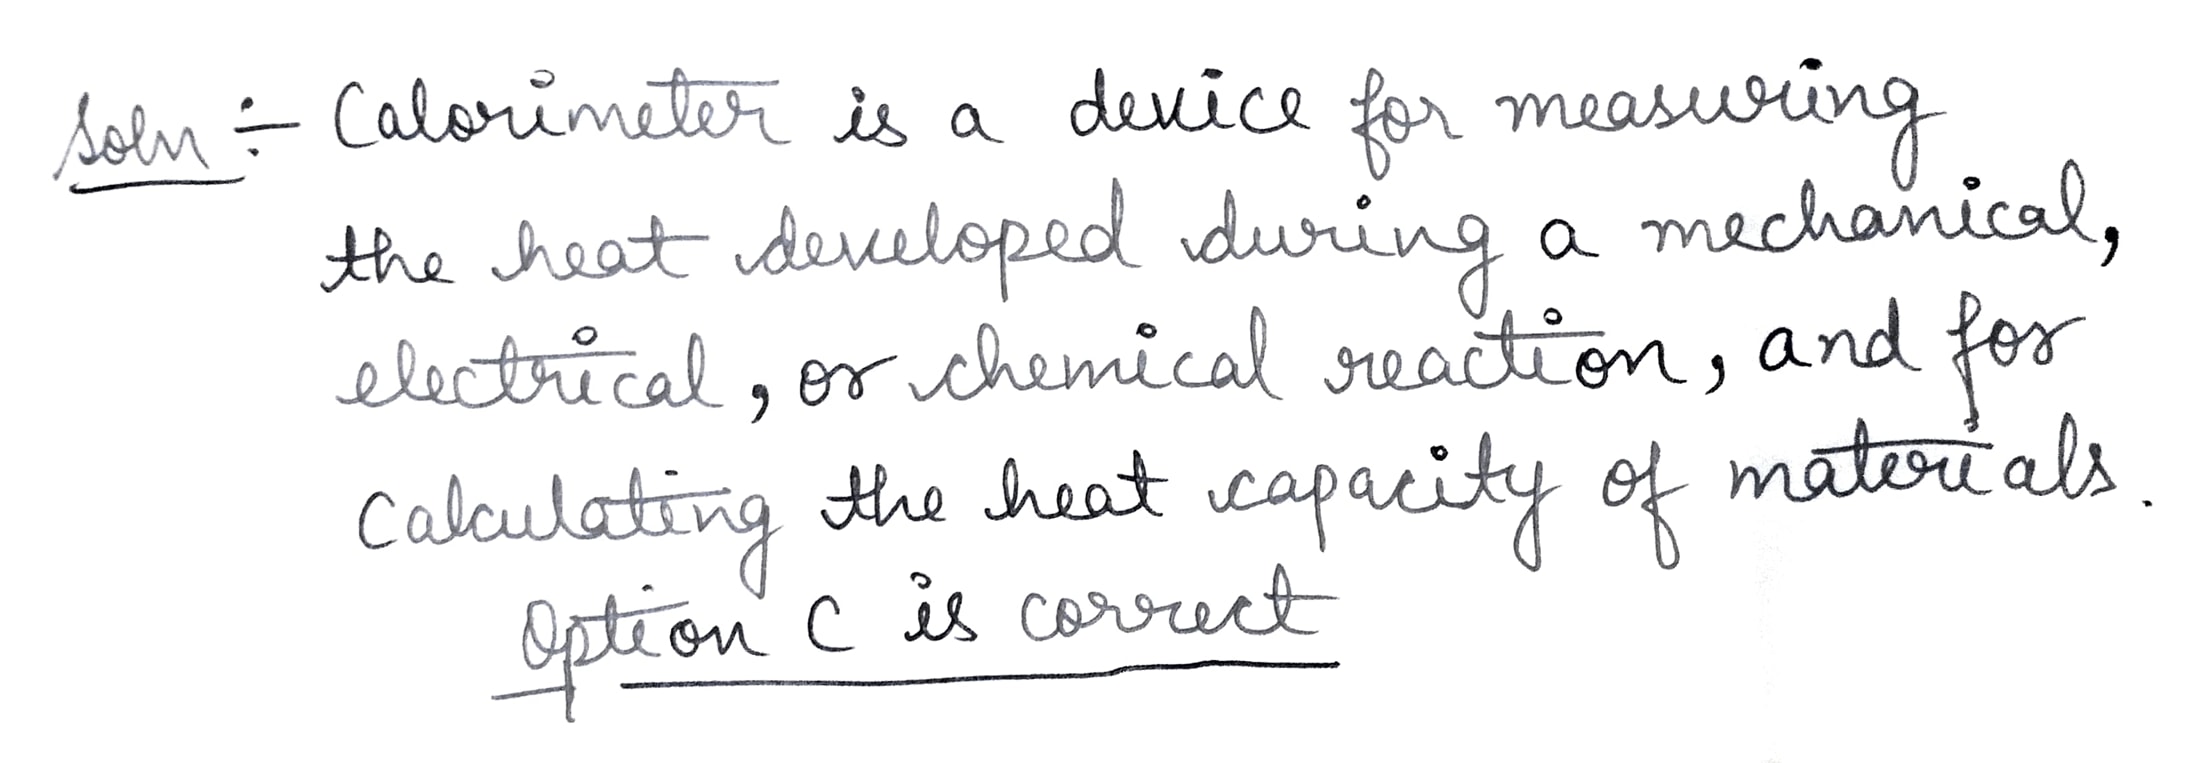 Soln :- Calorimeter is a device for measuring
the heat developed during a mechanical,
electrical, or chemical reaction, and for
calculating the heat capacity of materials.
Option C is correct